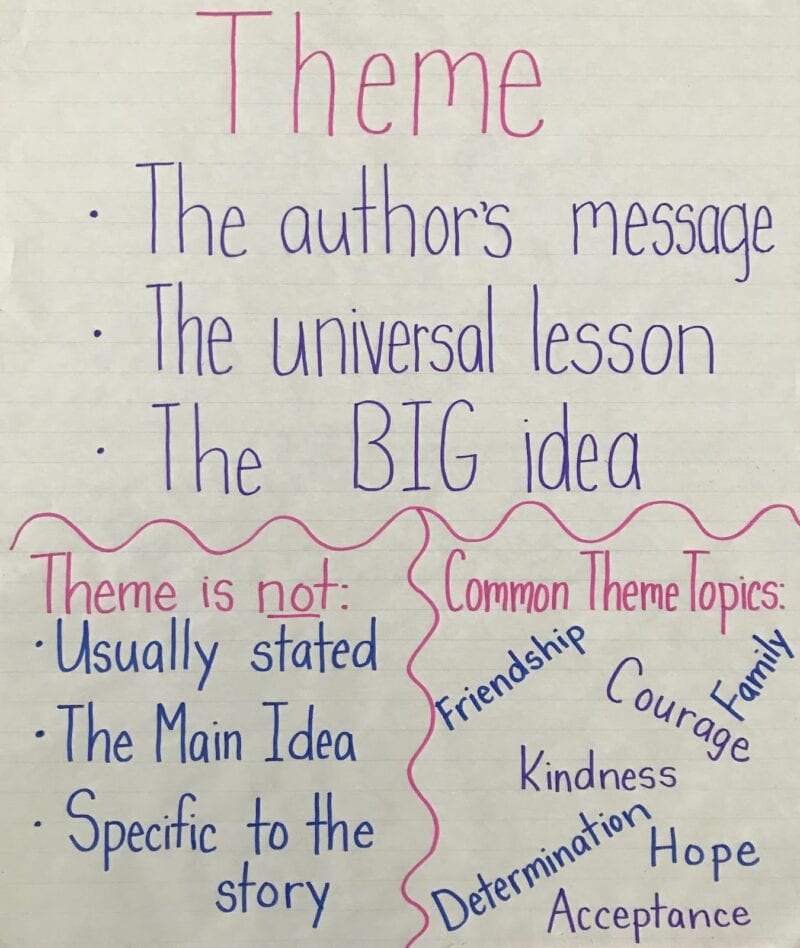 Theme
· The author's message
· The universal lesson
· The BIG idea
Theme is not:
· Usually stated
· The Main Idea
· Specific to the
story
Common Theme Topics:
Friendship
Courage
Family
Kindness
Determination
Hope
Acceptance